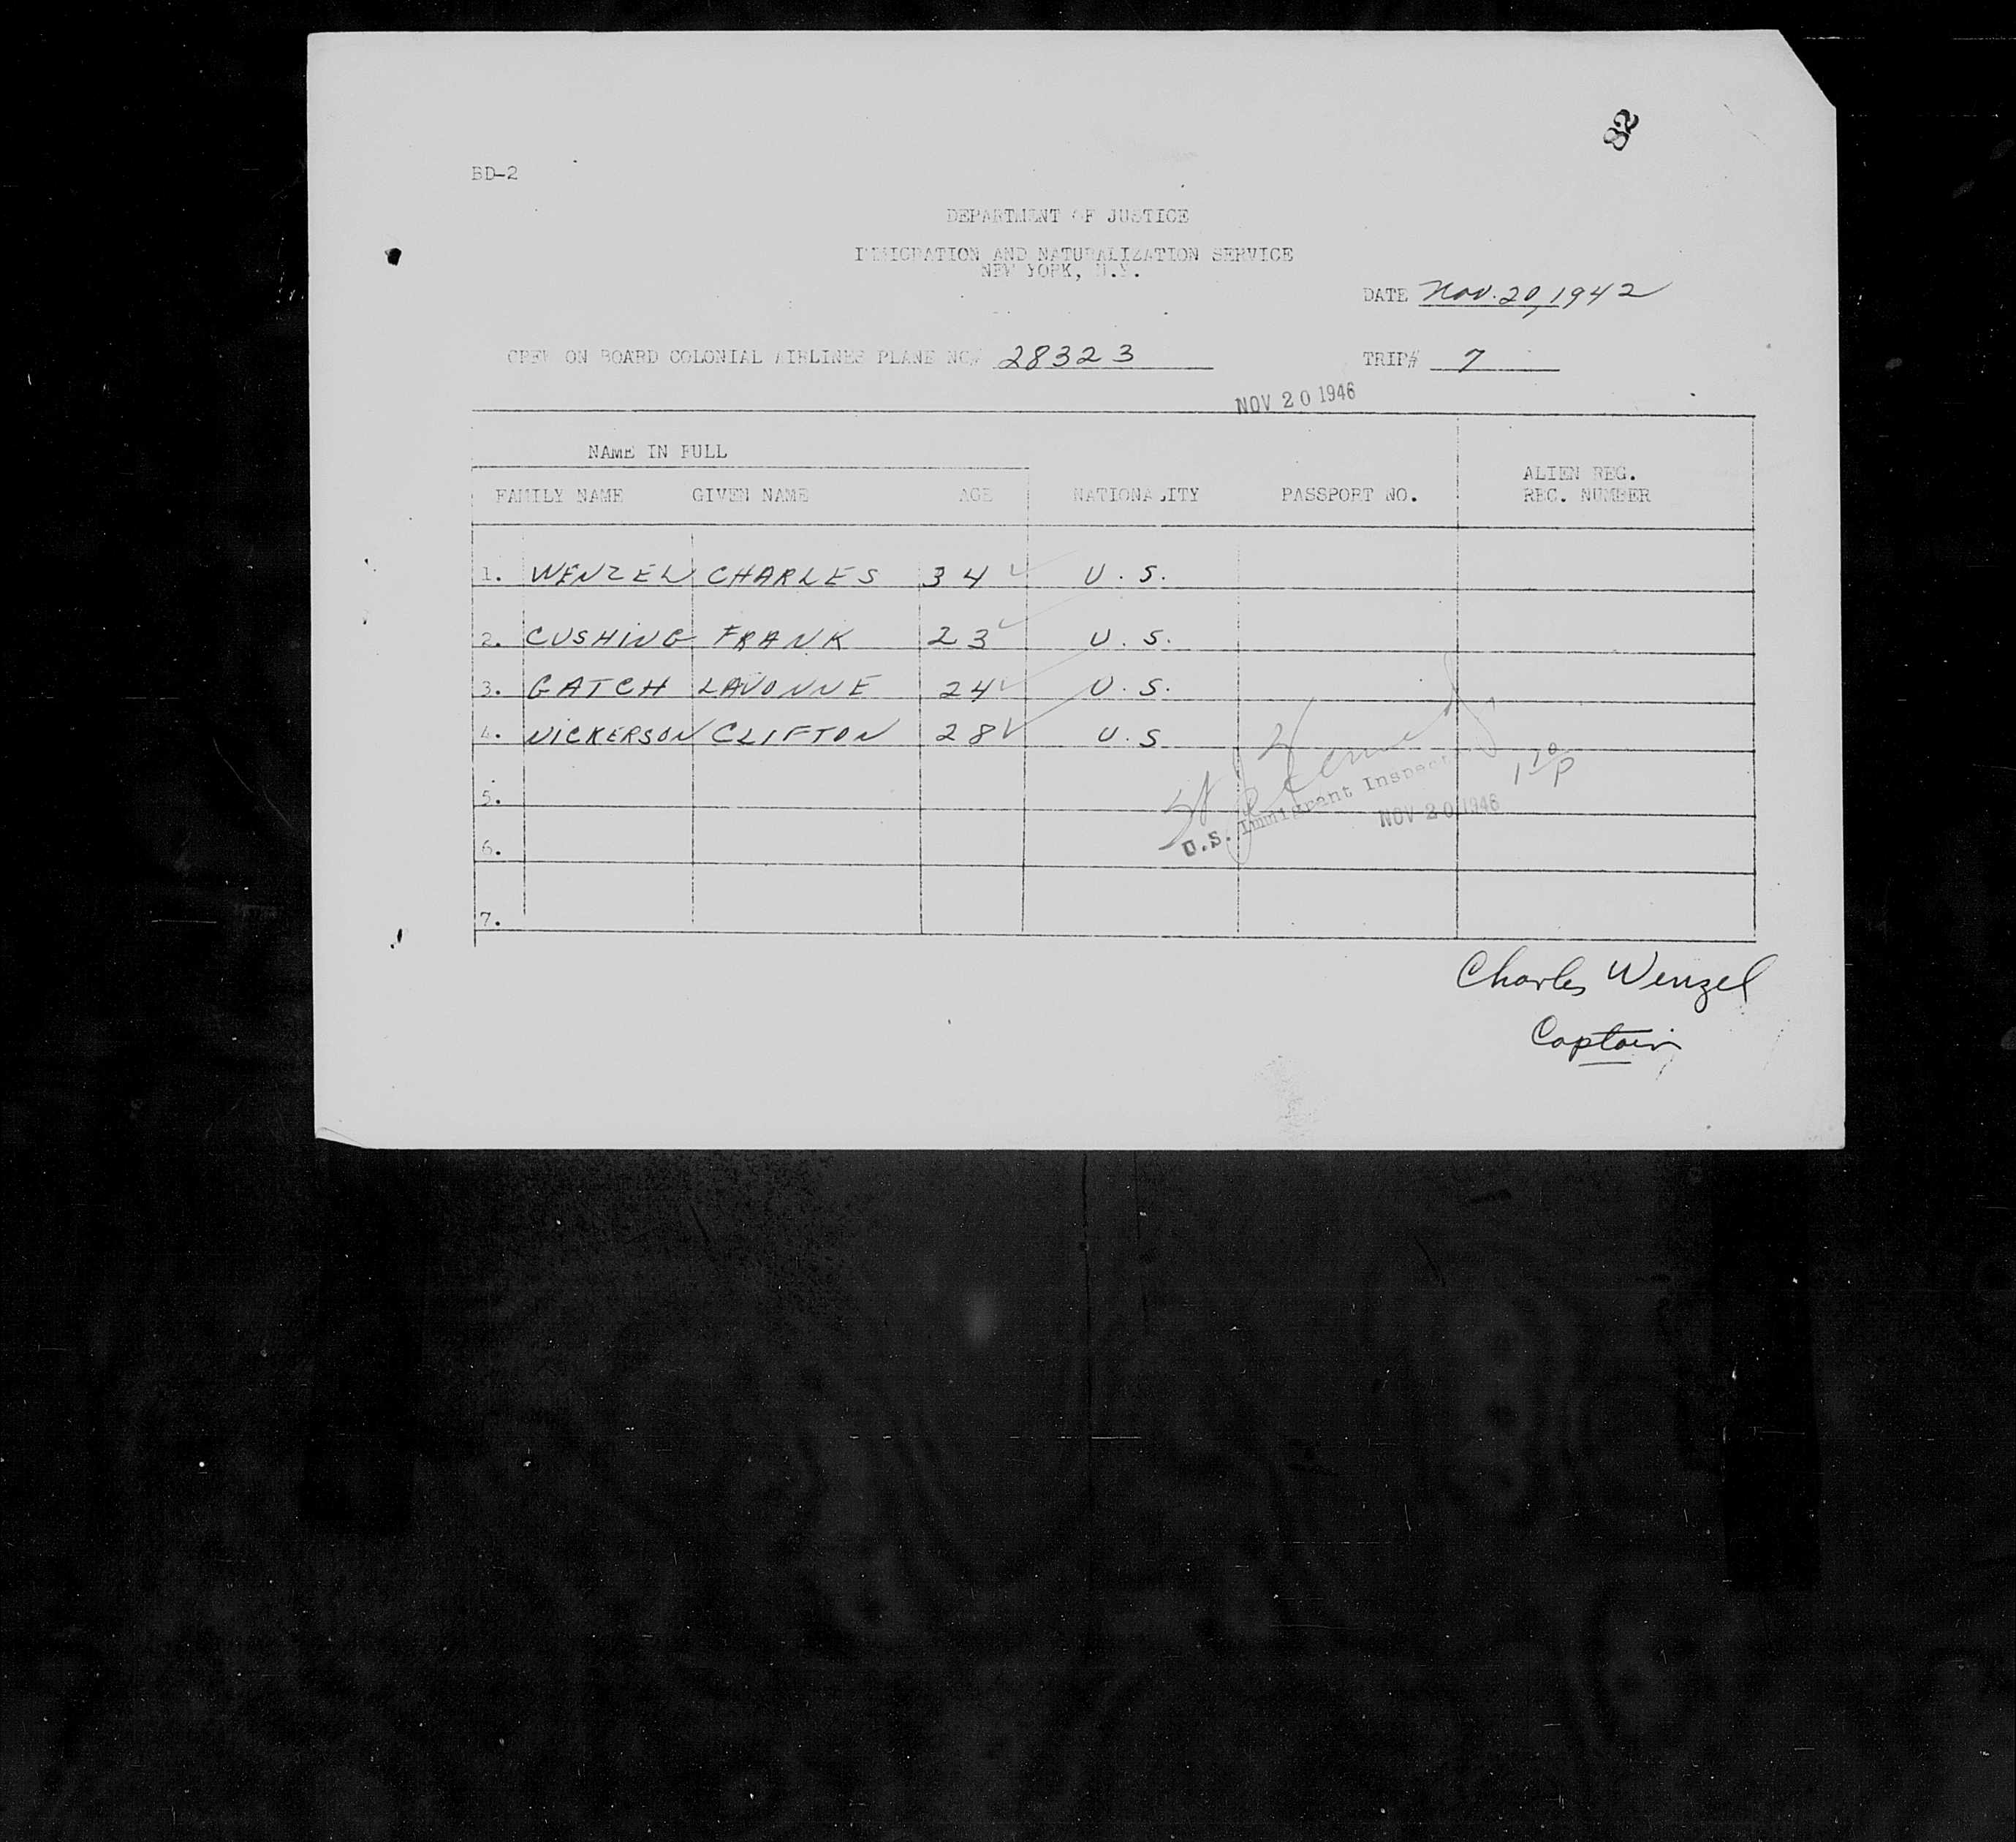 82
BD-2
DEPARTMENT OF JUSTICE
IMMIGRATION AND NATURALIZATION SERVICE
NEW YORK, N.Y.
DATE Nov. 20, 1942
CREW ON BOARD COLONIAL AIRLINES PLANE NO# 28323 TRIP# 7
NOV 20 1946
NAME IN FULL
FAMILY NAME GIVEN NAME AGE NATIONALITY PASSPORT NO. ALIEN REG. REC. NUMBER
1. WENZEL CHARLES 34 U.S.
2. CUSHING FRANK 23 U.S.
3. GATCH LAVONNE 24 U.S.
4. NICKERSON CLIFTON 28 U.S
5.
U.S. Immigrant Inspector
NOV 20 1946
6.
7.
Charles Wenzel
Captain